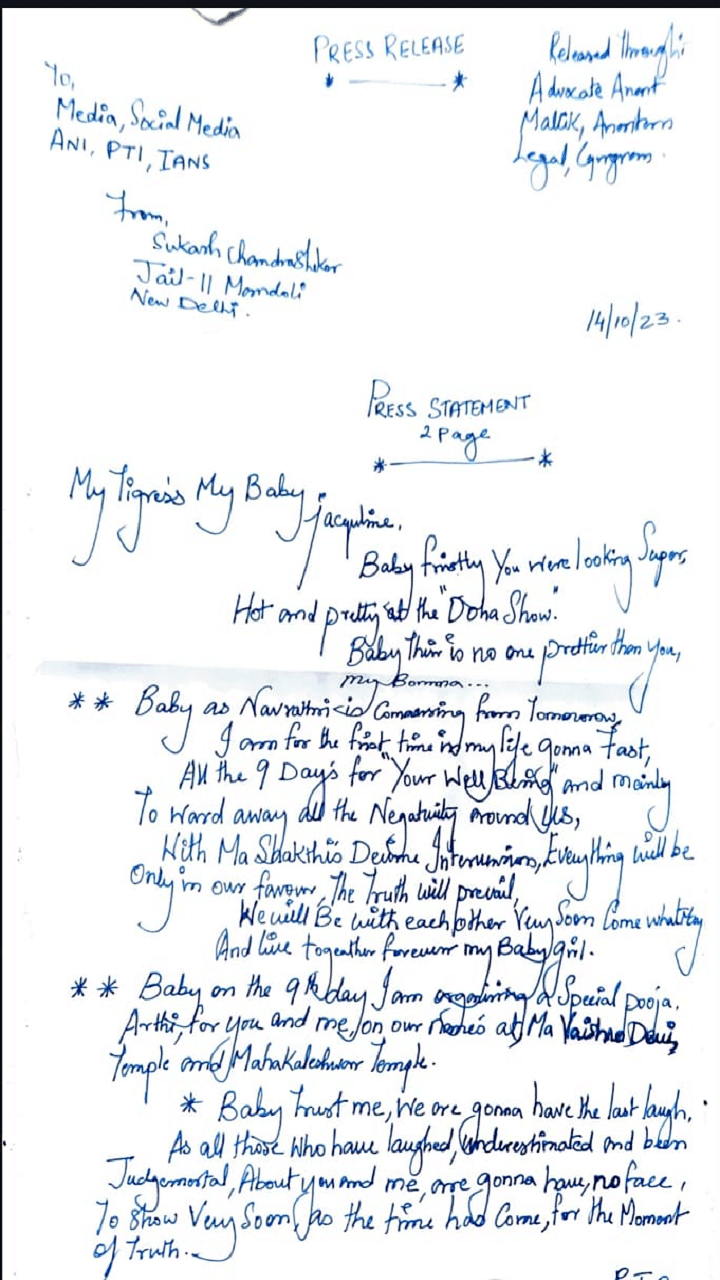 PRESS RELEASE
Released through:
Advocate Anant
Malik, Anantam
Legal, Gurgram.
To,
Media, Social Media
ANI, PTI, IANS
From,
Sukash Chandrashekar
Jail-11 Mandoli
New Delhi.
14/10/23.
PRESS STATEMENT
2 Page
My Tigress My Baby
Jacquline,
Baby firstly You were looking Super,
Hot and pretty at the "Doha Show."
Baby There is no one prettier than you,
my Bomma...
** Baby as Navrathri is Commencing from Tomorrow,
I am for the first time in my life gonna Fast,
All the 9 Day's for "Your Well Being" and mainly
To ward away all the Negativity around Us,
With Ma Shakthi's Devine Intervension, Everything will be
Only in our favour, The Truth will prevail,
We will Be with each other Very Soon Come what may
And live togeather forever my Baby girl.
** Baby on the 9th day I am organising a Special pooja,
Arthi, for you and me, on our name's at Ma Vaishno Devi,
Temple and Mahakaleshwar Temple.
* Baby trust me, We are gonna have the last laugh,
As all those who have laughed, Underestimated and been
Judgemental, About you and me, are gonna have, no face,
To Show Very Soon, as the time has Come, for the Moment
of Truth.